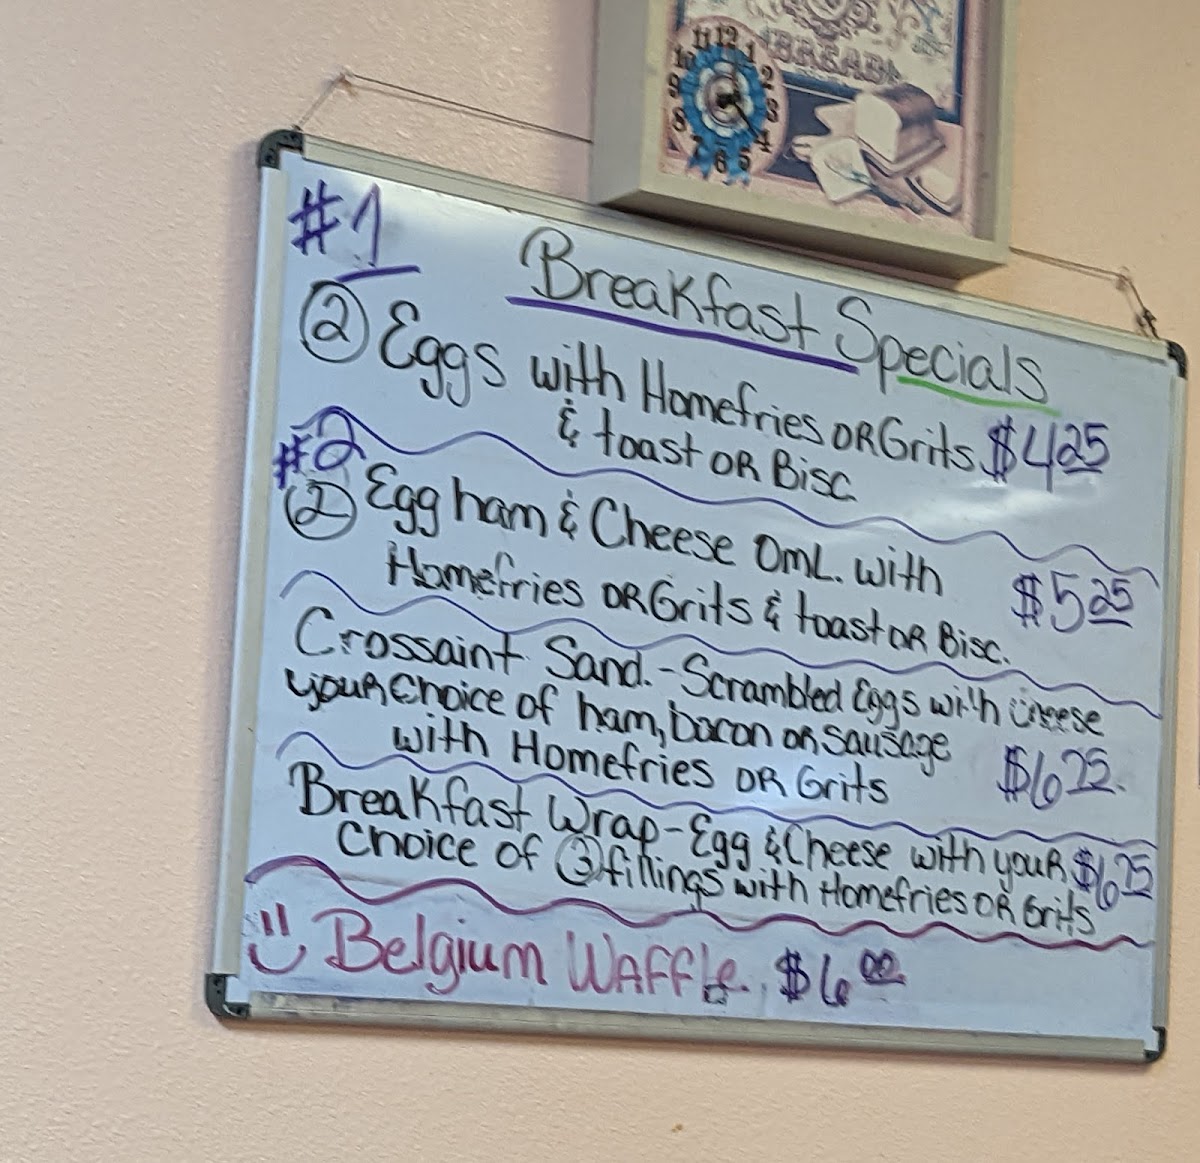 11 12 1
10 2
9 3
8 4
7 6 5
BREAD
#1
Breakfast Specials
② Eggs with Homefries OR Grits $4.25
& toast OR Bisc.
#2
② Egg ham & Cheese OmL. with
Homefries OR Grits & toast OR Bisc. $5 25
Crossaint Sand. - Scrambled Eggs with cheese
your choice of ham, bacon or sausage
with Homefries OR Grits $6 75.
Breakfast Wrap - Egg & Cheese with your $6 75
Choice of ③ fillings with Homefries OR Grits
Belgium WAFFle. $6 00